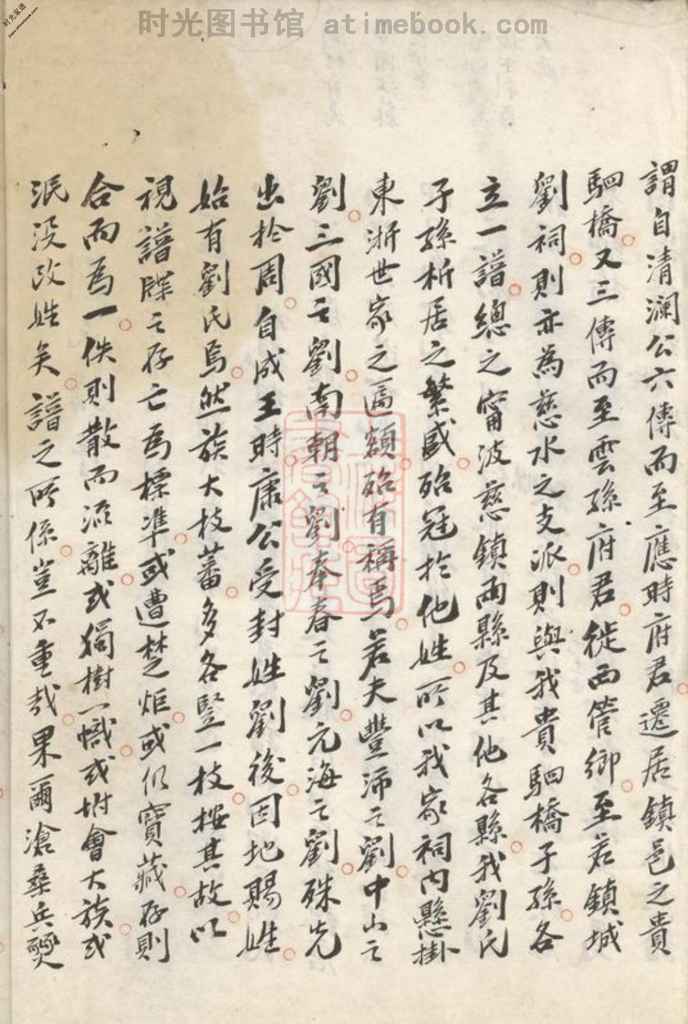 时光图书馆 atimebook.com
謂自清瀾公六傳而至應時府君遷居鎮邑之貴
駟橋又三傳而至雲孫府君徙西管鄉至若鎮城
劉祠則亦為慈水之支派則與我貴駟橋子孫各
立一譜總之甯波慈鎮兩縣及其他各縣我劉氏
子孫析居之繁盛殆冠扵他姓所以我家祠内懸掛
東浙世家之匾額殆有稱焉若夫豐沛之劉中山之
劉三國之劉南朝之劉奉春之劉元海之劉殊先
出扵周自成王時康公受封姓劉後因地賜姓
始有劉氏焉然族大枝蕃多各豎一枝按其故以
視譜牒之存亡為標準或遭楚炬或仍寳藏存則
合而為一佚則散而流離或獨樹一幟或坿會大族或
泯没改姓矣譜之所係豈不重哉果爾滄桑兵燹